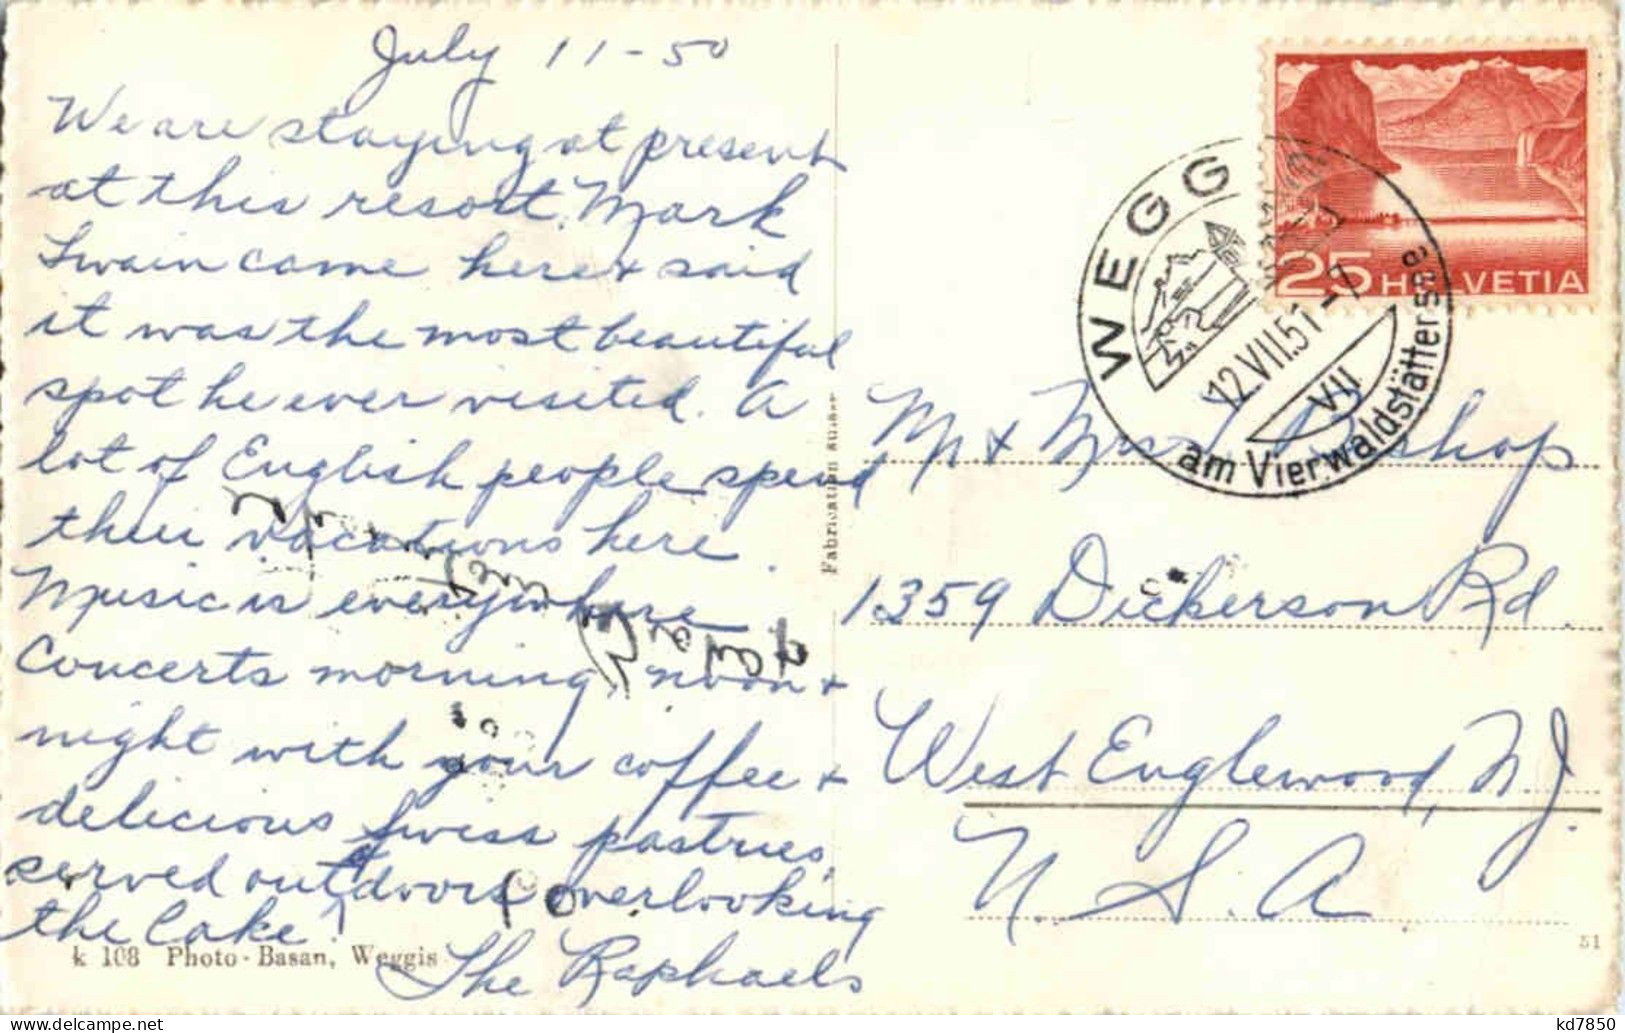 July 11-50
We are staying at present
at this resort. Mark
Twain came here + said
it was the most beautiful
spot he ever visited. A
lot of English people spend
their vacations here.
Music is everywhere
Concerts morning, noon +
night with your coffee +
delicious Swiss pastries,
served outdoors overlooking
the lake!
The Raphaels
k 108 Photo-Basan, Weggis
Fabrication suisse
25 HELVETIA
WEGGIS
12.VII.51
VII
am Vierwaldstättersee
Mr + Mrs Bishop
1359 Dickerson Rd.
West Englewood, N.J.
U.S.A.
51
kd7850